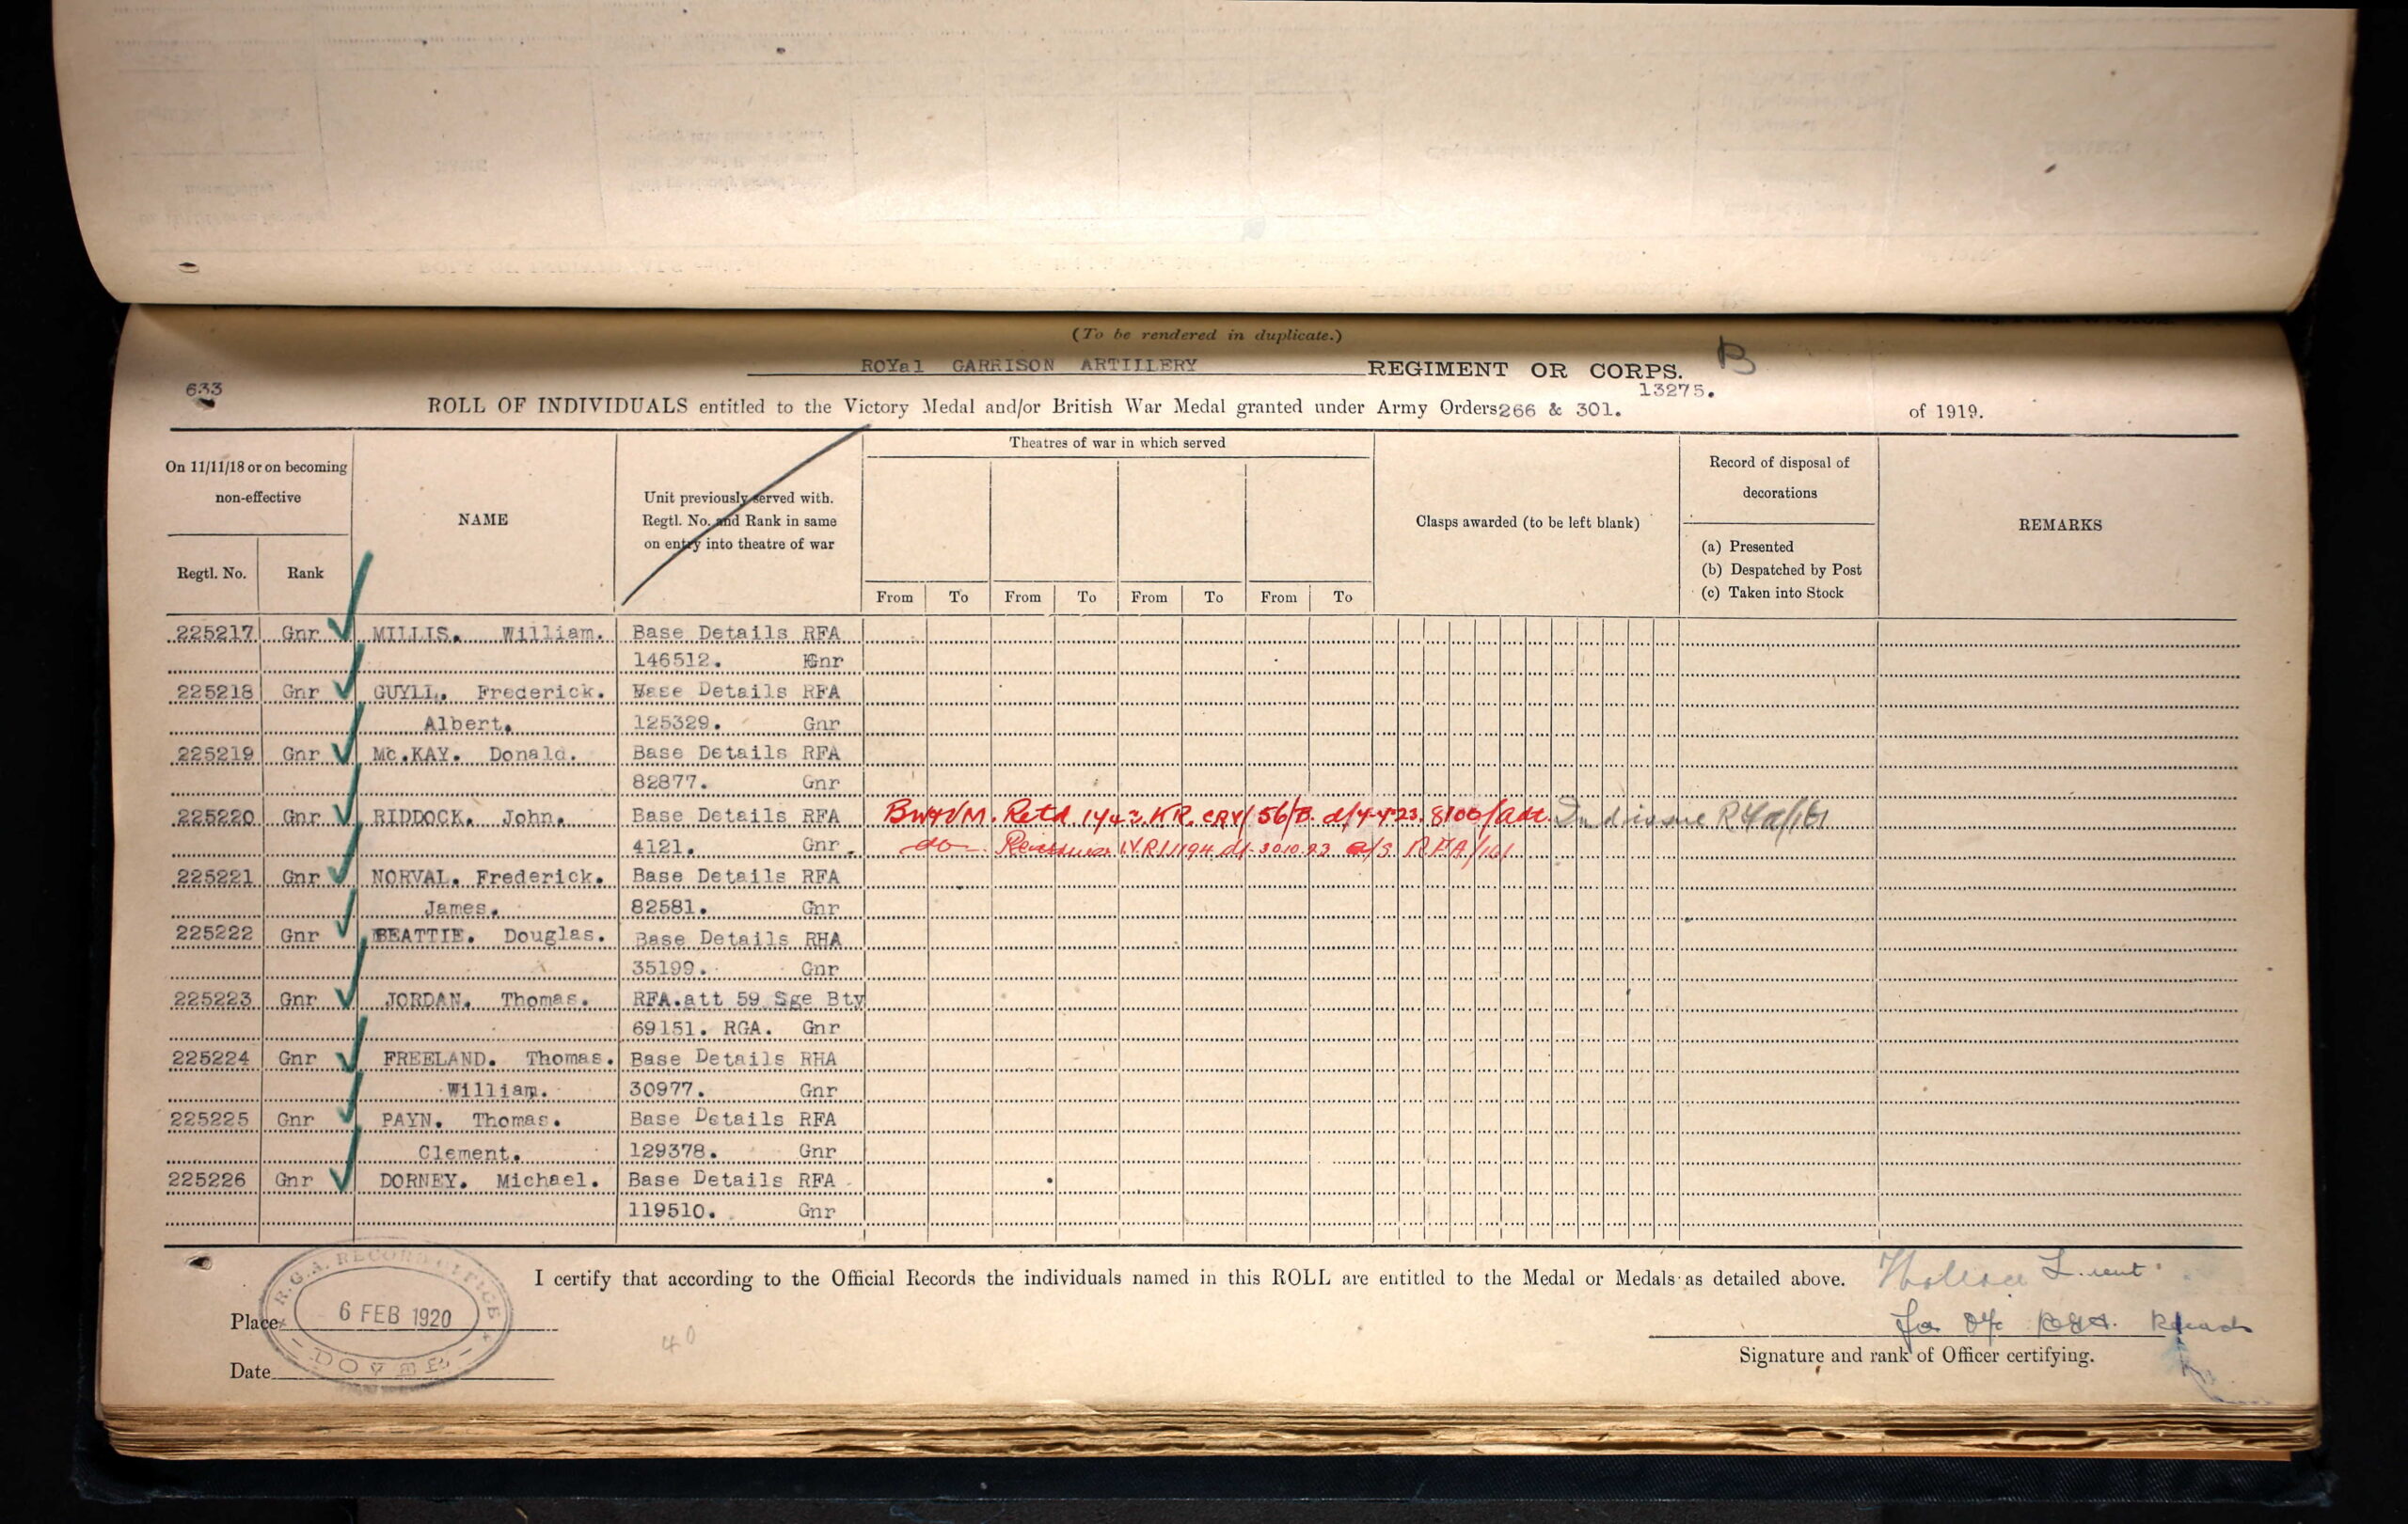 (To be rendered in duplicate.)
ROYal GARRISON ARTILLERY REGIMENT OR CORPS. B
633
13275.
ROLL OF INDIVIDUALS entitled to the Victory Medal and/or British War Medal granted under Army Orders 266 & 301. of 1919.
On 11/11/18 or on becoming non-effective
Regtl. No. Rank
NAME
Unit previously served with. Regtl. No. and Rank in same on entry into theatre of war
Theatres of war in which served
From To From To From To From To
Clasps awarded (to be left blank)
Record of disposal of decorations
(a) Presented
(b) Despatched by Post
(c) Taken into Stock
REMARKS
225217 Gnr MILLIS. William. Base Details RFA
146512. Gnr
225218 Gnr GUYLL. Frederick. Base Details RFA
Albert. 125329. Gnr
225219 Gnr Mc.KAY. Donald. Base Details RFA
82877. Gnr
225220 Gnr RIDDOCK. John. Base Details RFA BW&VM. Retd 1743 KR. CRV/56/B. d/4-4-23. 8100/Adt.
4121. Gnr. do d/- 30.10.23 RFA/161
225221 Gnr NORVAL. Frederick. Base Details RFA
James. 82581. Gnr
225222 Gnr BEATTIE. Douglas. Base Details RHA
35199. Gnr
225223 Gnr JORDAN. Thomas. RFA.att 59 Sge Bty
69151. RGA. Gnr
225224 Gnr FREELAND. Thomas. Base Details RHA
William. 30977. Gnr
225225 Gnr PAYN. Thomas. Base Details RFA
Clement. 129378. Gnr
225226 Gnr DORNEY. Michael. Base Details RFA
119510. Gnr
I certify that according to the Official Records the individuals named in this ROLL are entitled to the Medal or Medals as detailed above. Lieut
R.G.A. RECORD OFFICE
6 FEB 1920
DOVER
Place
40
for O/c RGA. Records
Signature and rank of Officer certifying.
Date